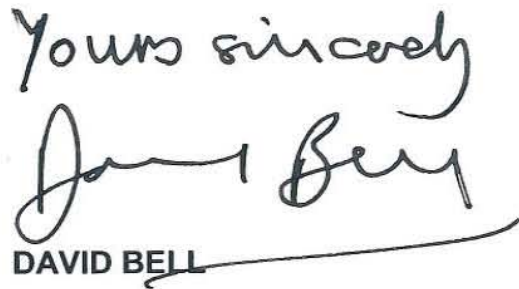 Yours sincerely
David Bell
DAVID BELL